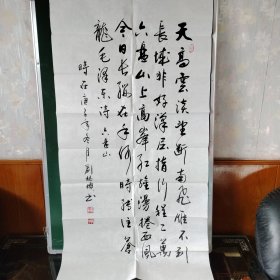 天高雲淡望斷南飛雁不到
長城非好漢屈指行程二萬
六盘山上高峰紅旗漫捲西風
今日长纓在手何時縛住蒼
龍毛澤東詩六盘山
時在庚子年冬月劉书